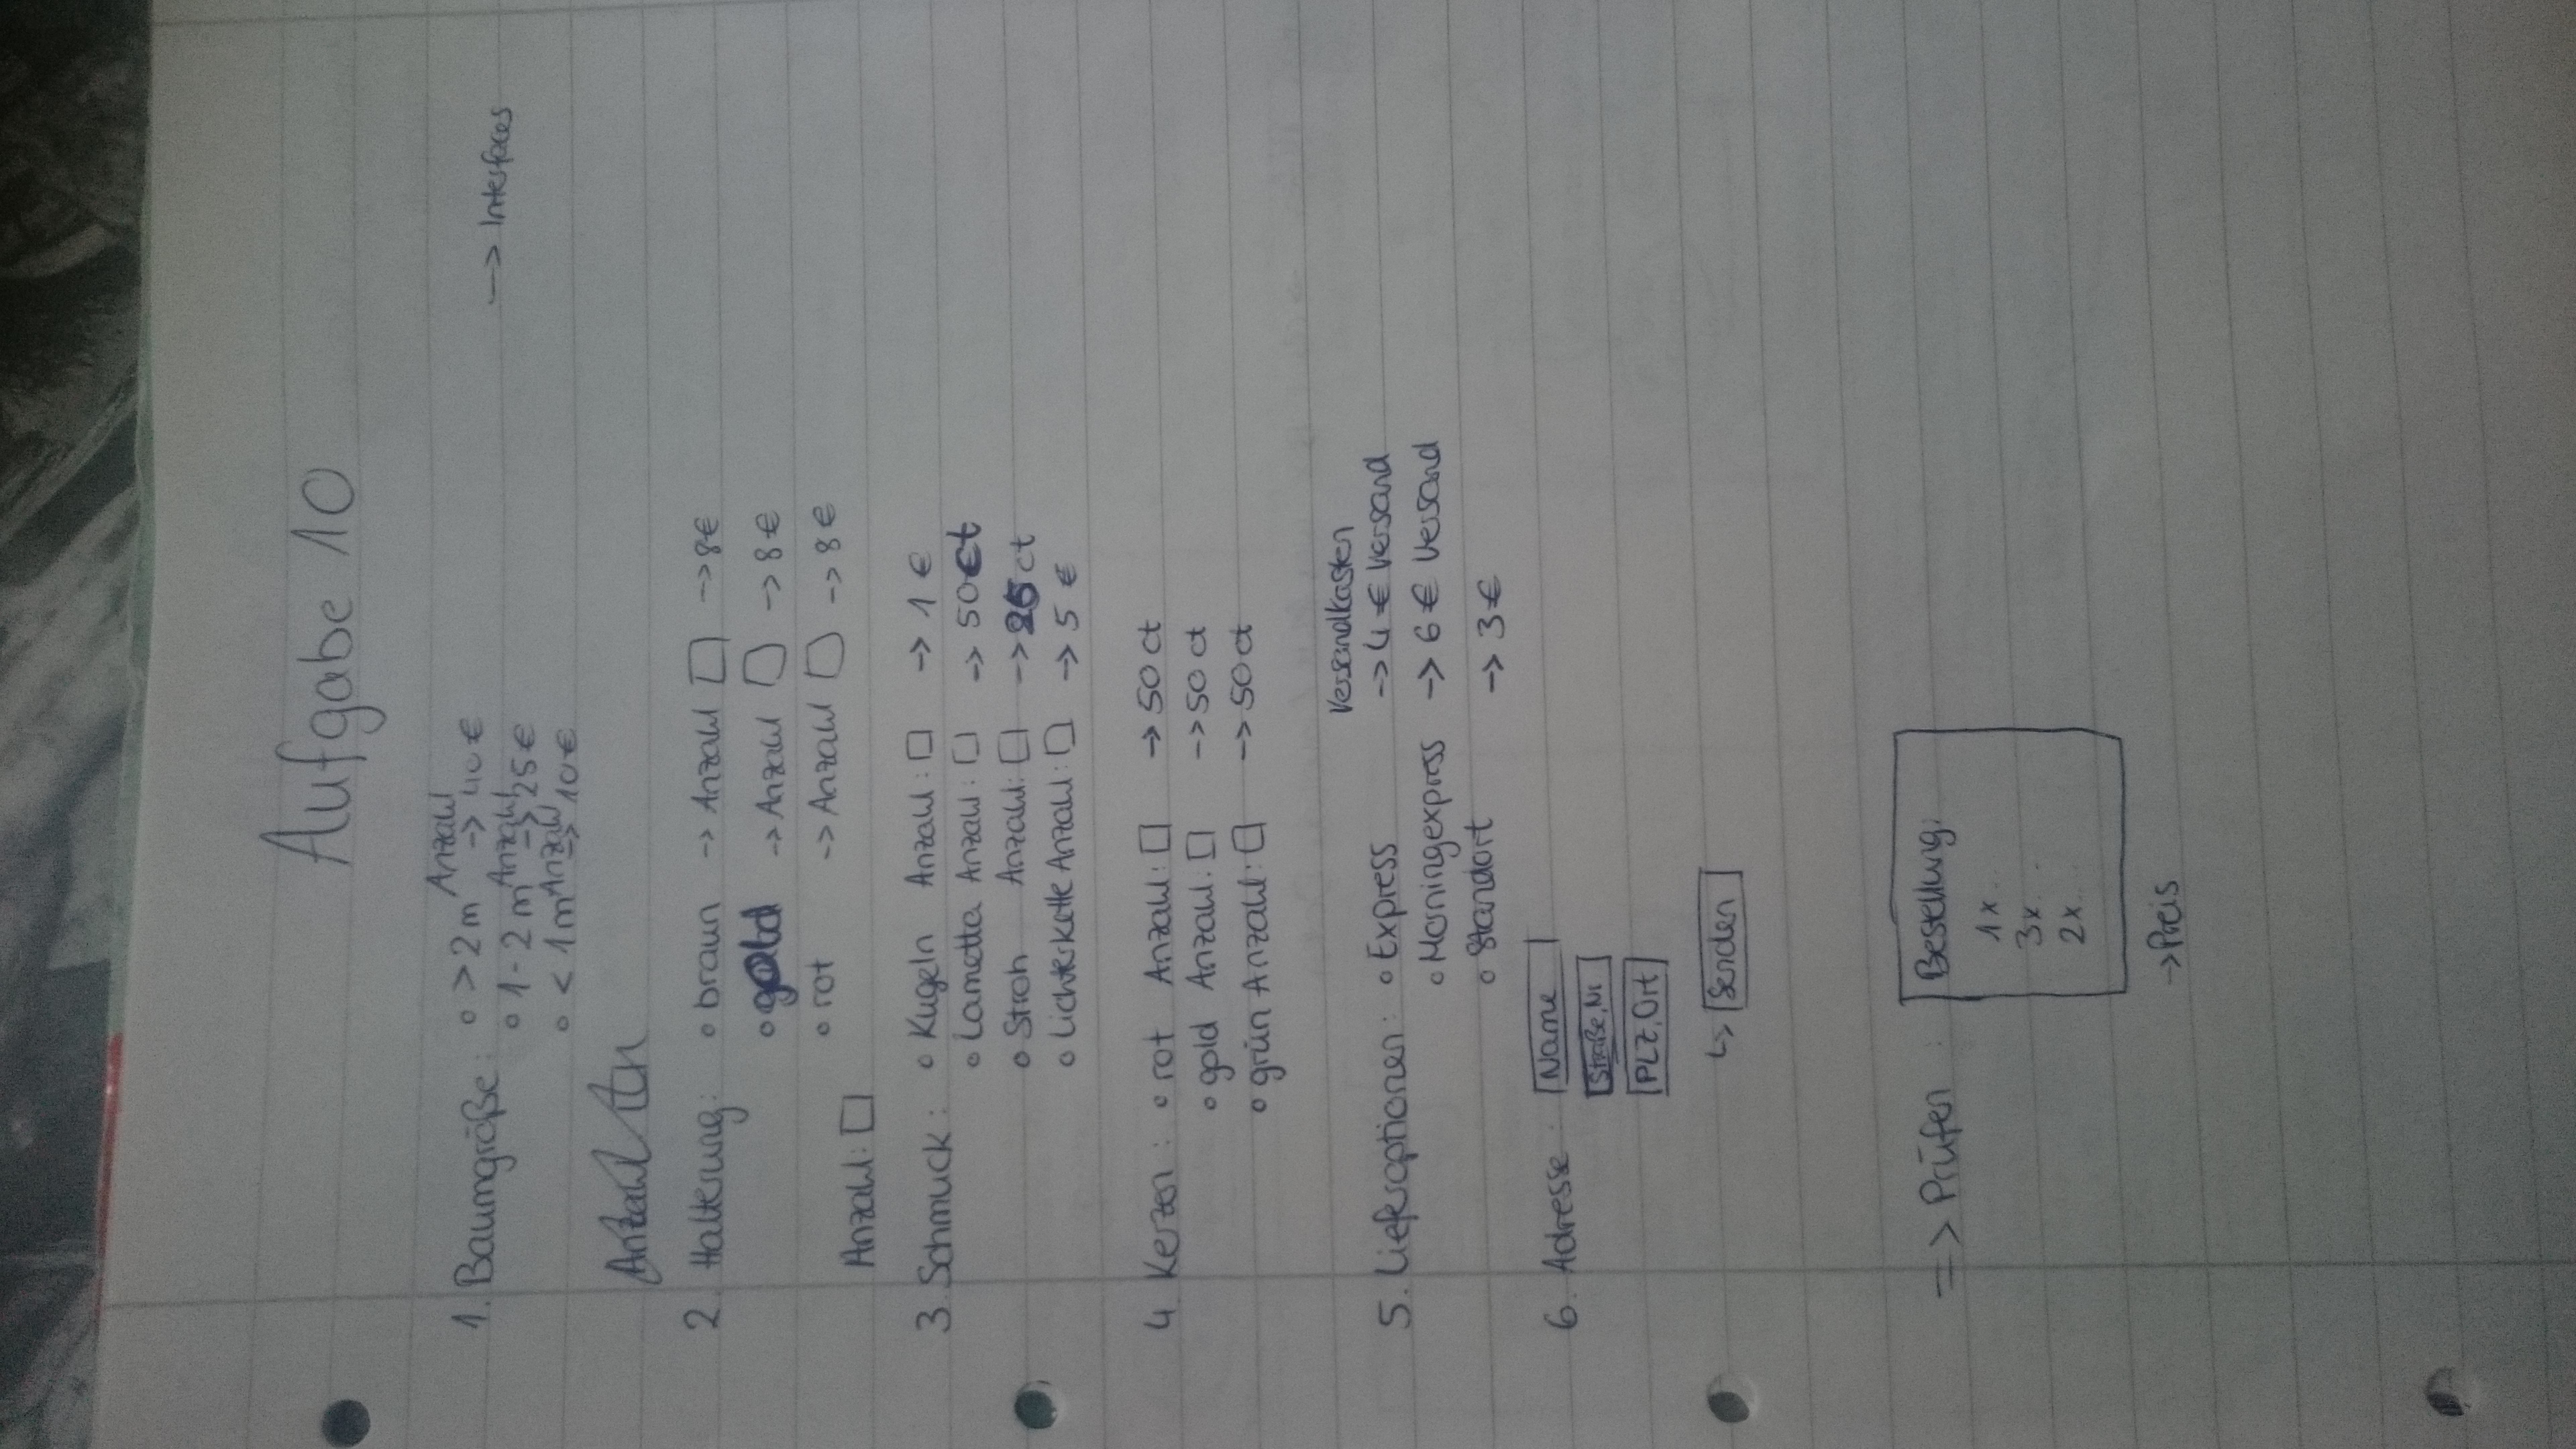 Aufgabe 10
1. Baumgröße: o > 2m Anzahl -> 40€
-> Interfaces
o 1-2 m Anzahl -> 25€
o < 1m Anzahl -> 10€
Anzahl
2. Halterung: o braun -> Anzahl -> 8€
o gold -> Anzahl -> 8€
o rot -> Anzahl -> 8€
Anzahl:
3. Schmuck: o Kugeln Anzahl: -> 1€
o Lametta Anzahl: -> 50ct
o Stroh Anzahl: -> 25ct
o Lichterkette Anzahl: -> 5€
4. Kerzen: o rot Anzahl: -> 50ct
o gold Anzahl: -> 50ct
o grün Anzahl: -> 50ct
Versandkosten
5. Lieferoptionen: o Express -> 4€ Versand
o Morningexpress -> 6€ Versand
o Standort -> 3€
6. Adresse: Name
Straße, Nr
PLZ, Ort
↳ Senden
=> Prüfen: Bestellung:
1x...
3x...
2x...
-> Preis